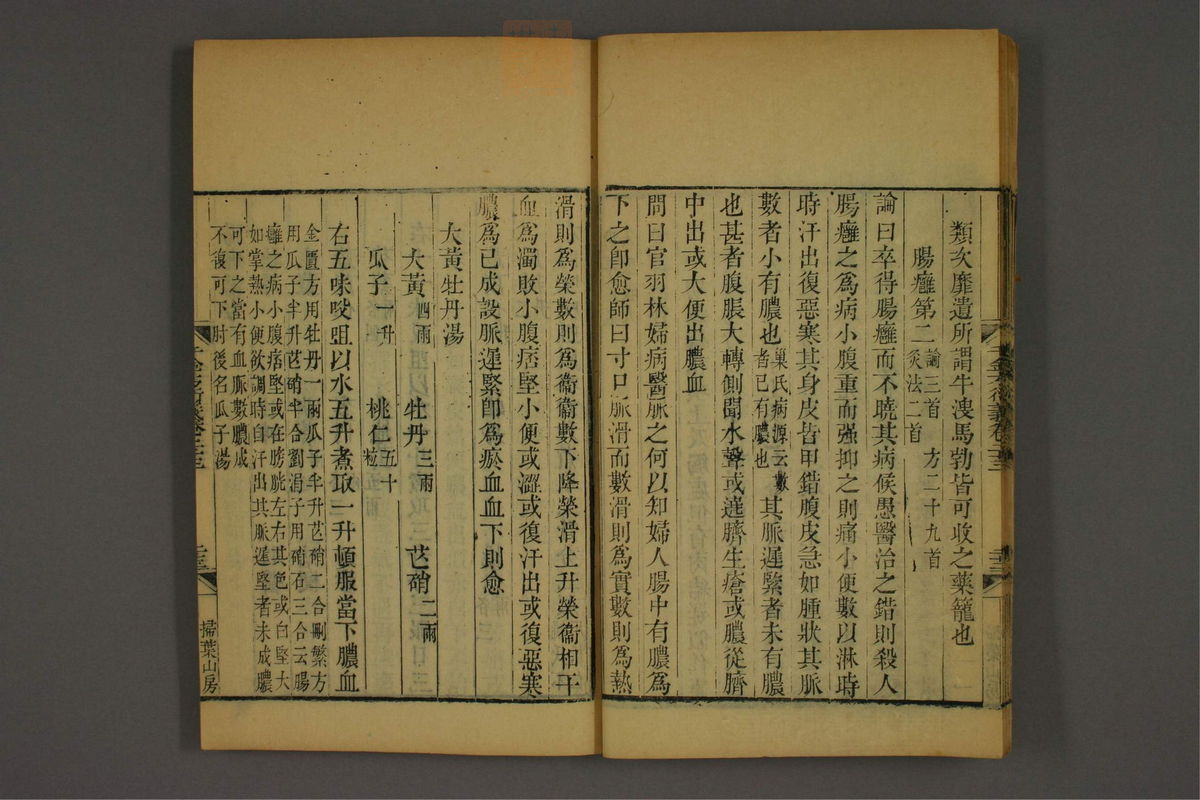 類次靡遺所謂牛溲馬勃皆可收之藥籠也
腸癰第二 論三首 方二十九首 灸法二首
論曰卒得腸癰而不曉其病候愚醫治之錯則殺人
腸癰之為病小腹重而强抑之則痛小便數似淋時
時汗出復惡寒其身皮皆甲錯腹皮急如腫狀其脈
數者小有膿也 巢氏病源云數者已有膿也 其脈遲緊者未有膿
也甚者腹脹大轉側聞水聲或遶臍生瘡或膿從臍
中出或大便出膿血
問曰官羽林婦病醫脈之何以知婦人腸中有膿為
下之即愈師曰寸口脈滑而數滑則為實數則為熱
滑則為榮數則為衞衞數下降榮滑上升榮衞相干
血為濁敗小腹痞堅小便或澀或復汗出或復惡寒
膿為已成設脈遲緊即為瘀血血下則愈
大黃牡丹湯
大黃四兩 牡丹三兩 芒硝二兩
瓜子一升 桃仁五十粒
右五味㕮咀以水五升煮取一升頓服當下膿血
金匱方用牡丹一兩瓜子半升芒硝二合刪繁方
用瓜子半升芒硝半合劉涓子用硝石三合云腸
癰之病小腹痞堅或在膀胱左右其色或白堅大
如掌熱小便欲調時自汗出其脈遲堅者未成膿
可下之當有血脈數膿成
不復可下肘後名瓜子湯
掃葉山房